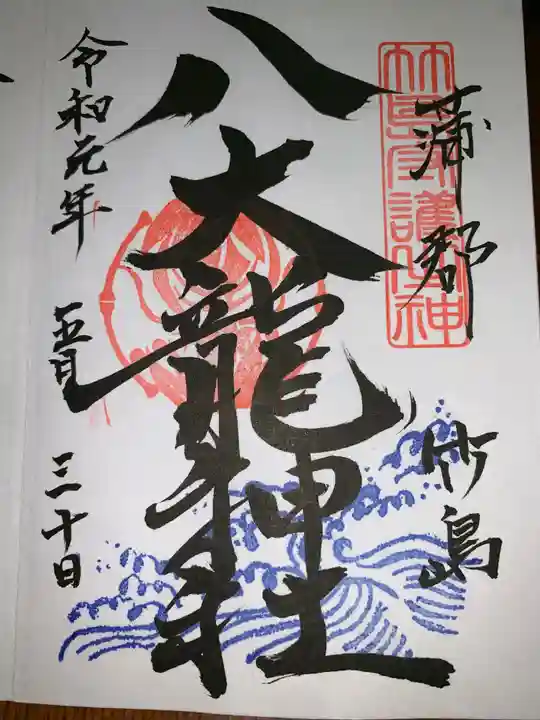 蒲郡
竹島
竹島守護神
八大龍神社
令和元年
五月
三十日